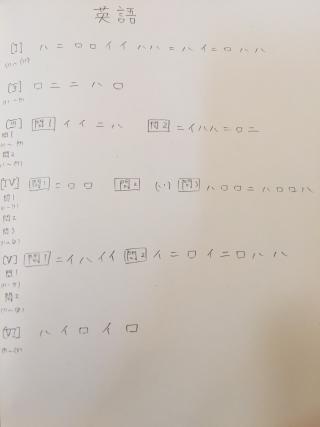 英語
[I] ハ ニ ロ ロ イ イ ハ ハ ニ ハ イ ニ ロ ハ ハ
[II] ロ ニ ニ ハ ロ
[III] 問1 イ イ ニ ハ 問2 ニ イ ハ ハ ニ ロ ニ
問1
問2
[IV] 問1 ニ ロ ロ 問2 (い) 問3 ハ ロ ロ ニ ハ ロ ロ ハ
問1
問2
問3
[V] 問1 ニ イ ハ イ イ 問2 イ ニ ロ イ ニ ロ ハ ハ
問1
問2
[VI] ハ イ ロ イ ロ